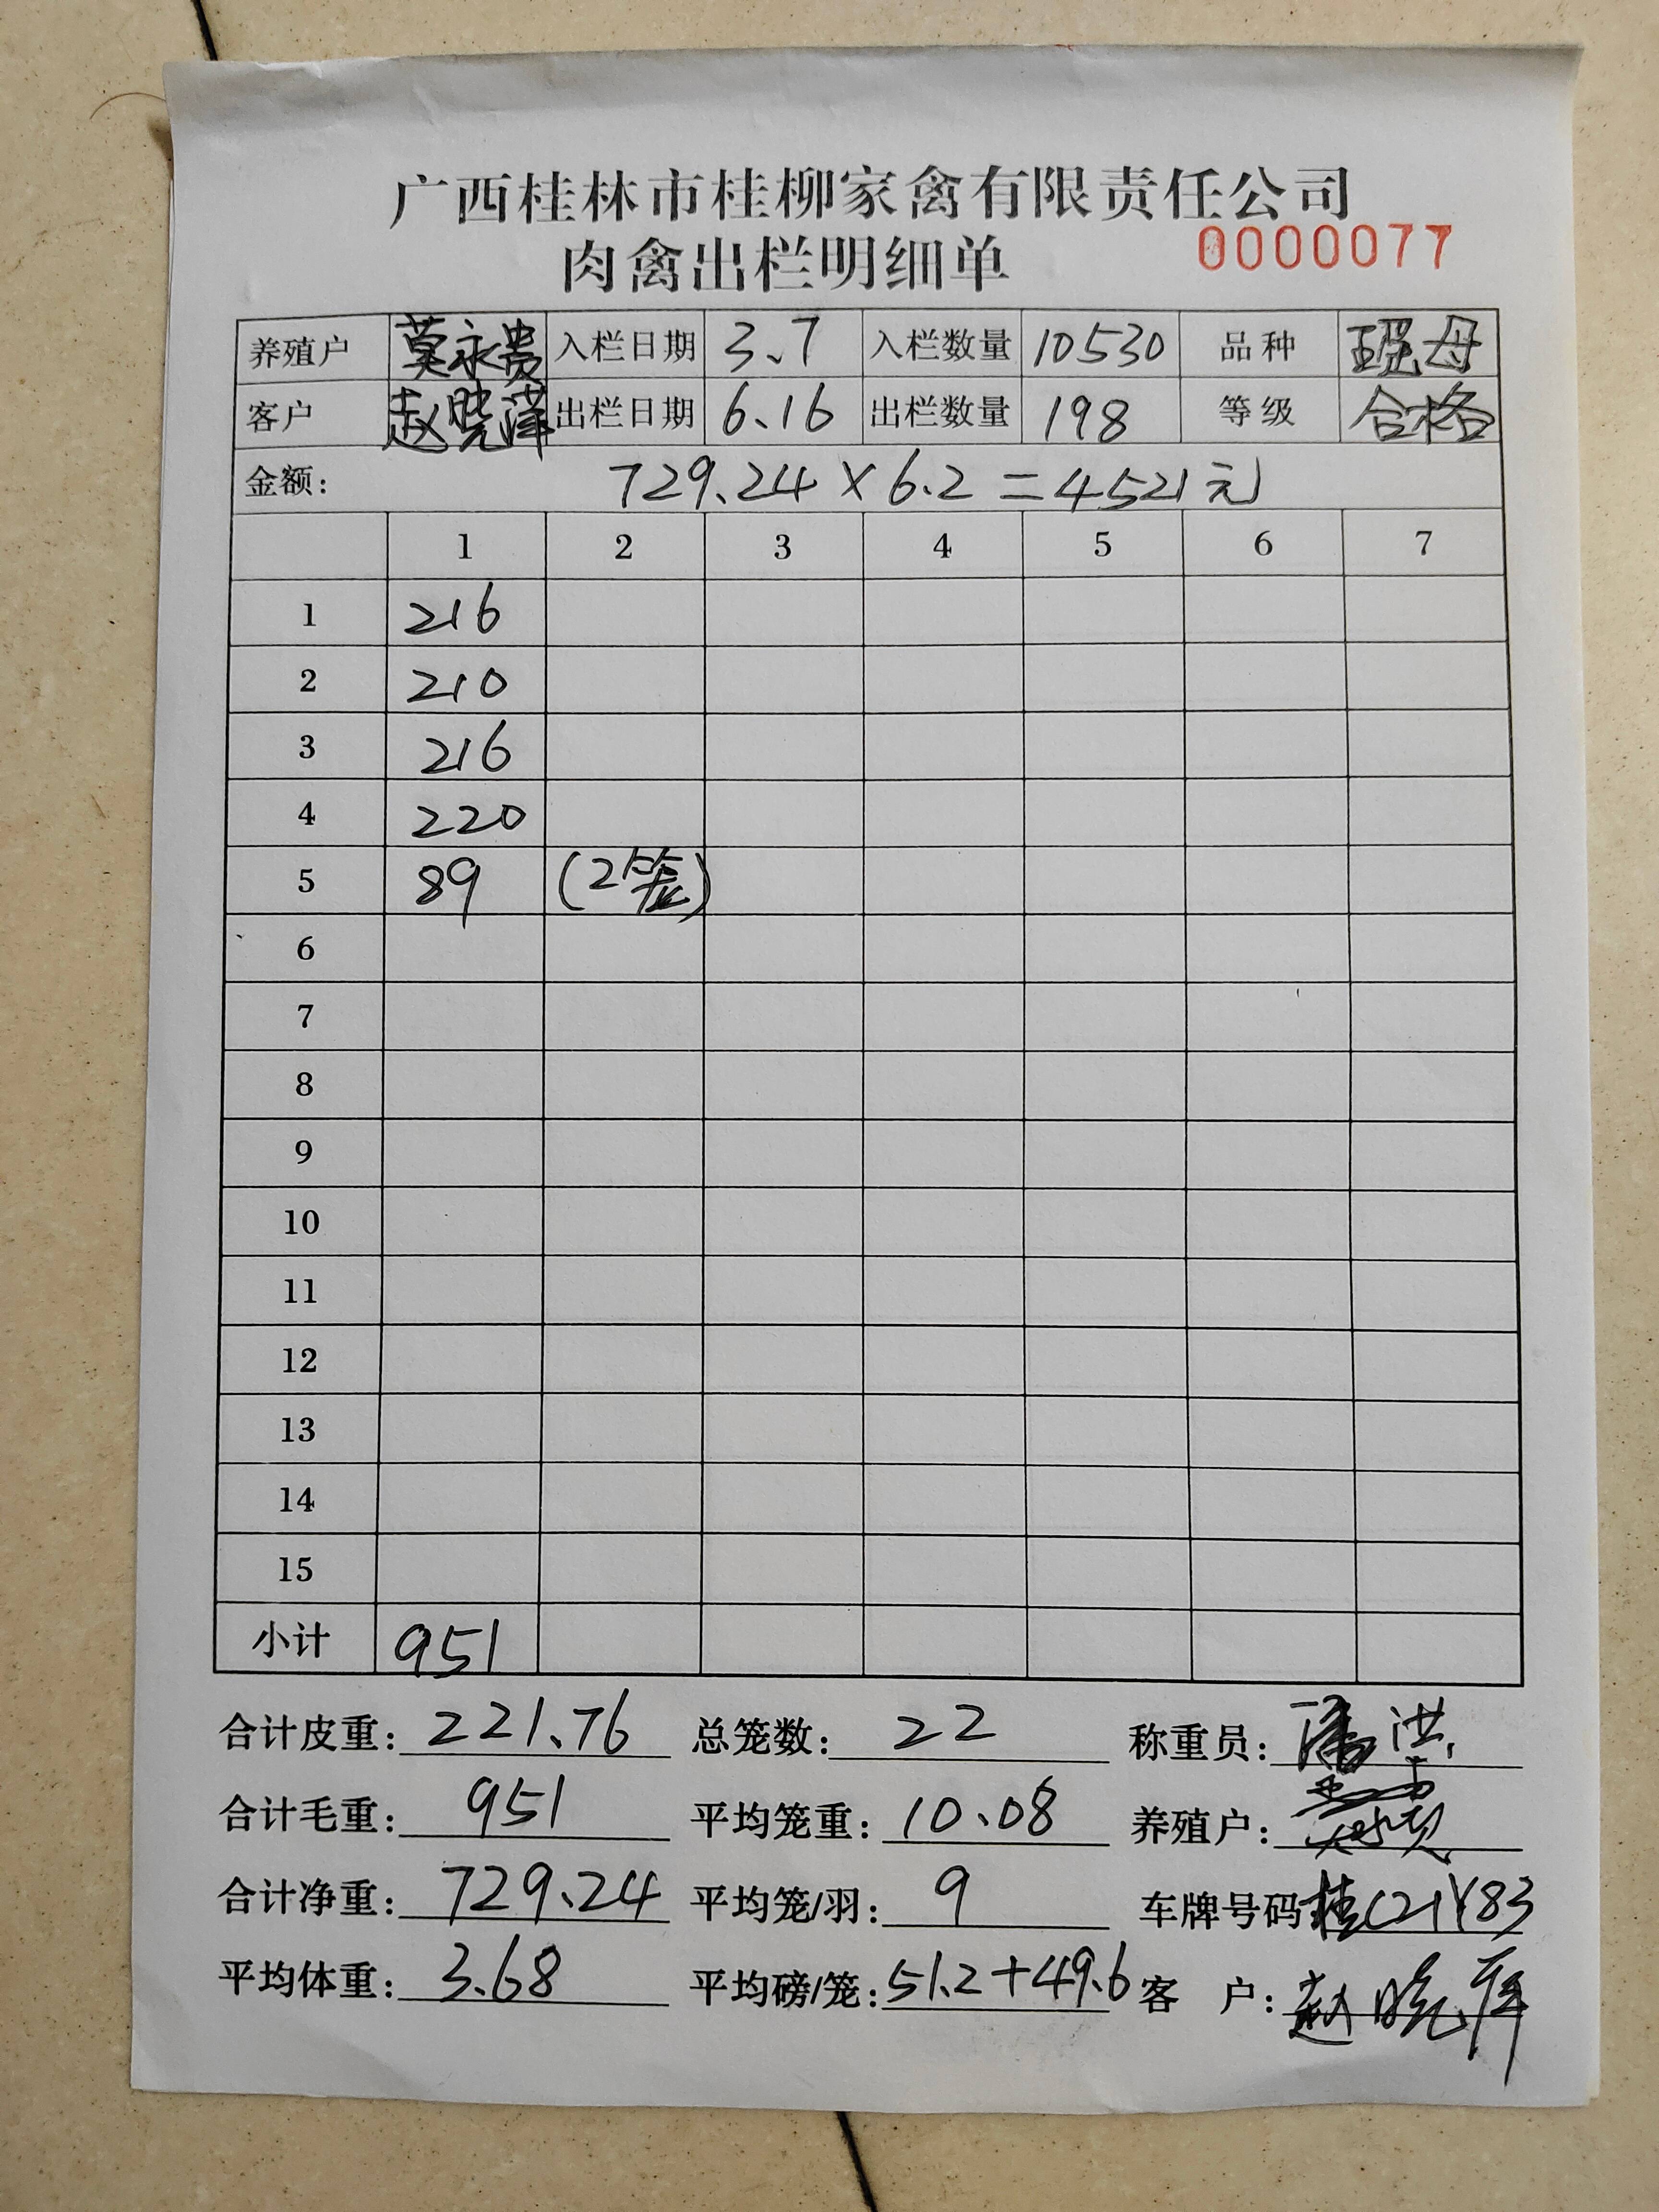 广西桂林市桂柳家禽有限责任公司
肉禽出栏明细单 0000077
养殖户 莫永贵 入栏日期 3.7 入栏数量 10530 品种 瑶母
客户 赵晓萍 出栏日期 6.16 出栏数量 198 等级 合格
金额: 729.24 × 6.2 = 4521元
1 2 3 4 5 6 7
1 216
2 210
3 216
4 220
5 89 (2笼)
6
7
8
9
10
11
12
13
14
15
小计 951
合计皮重: 221.76 总笼数: 22 称重员: 潘洪
合计毛重: 951 平均笼重: 10.08 养殖户:
合计净重: 729.24 平均笼/羽: 9 车牌号码 桂C21Y83
平均体重: 3.68 平均磅/笼: 51.2+49.6 客 户: 赵晓萍